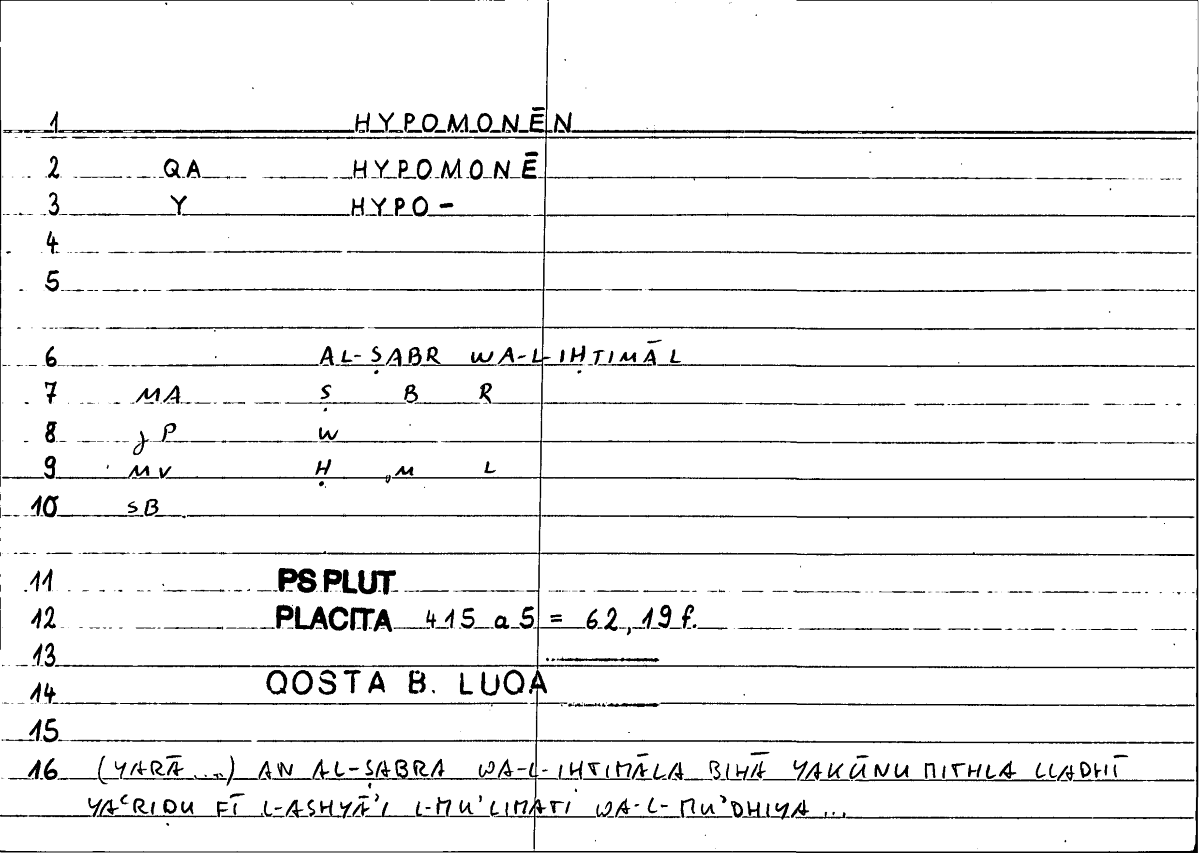 1 HYPOMONĒN
2 QA HYPOMONĒ
3 Y HYPO-
4
5
6 AL-ṢABR WA-L-IḤTIMĀL
7 MA Ṣ B R
8 jP W
9 MV Ḥ M L
10 SB
11 PS PLUT
12 PLACITA 415 a 5 = 62,19 f.
13
14 QOSTA B. LUQA
15
16 (YARĀ ...) AN AL-ṢABRA WA-L-IHTIMĀLA BIHĀ YAKŪNU MITHLA LLADHĪ
YAʿRIDU FĪ L-ASHYĀʾI L-MUʾLIMATI WA-L-MUʾDHIYA ...